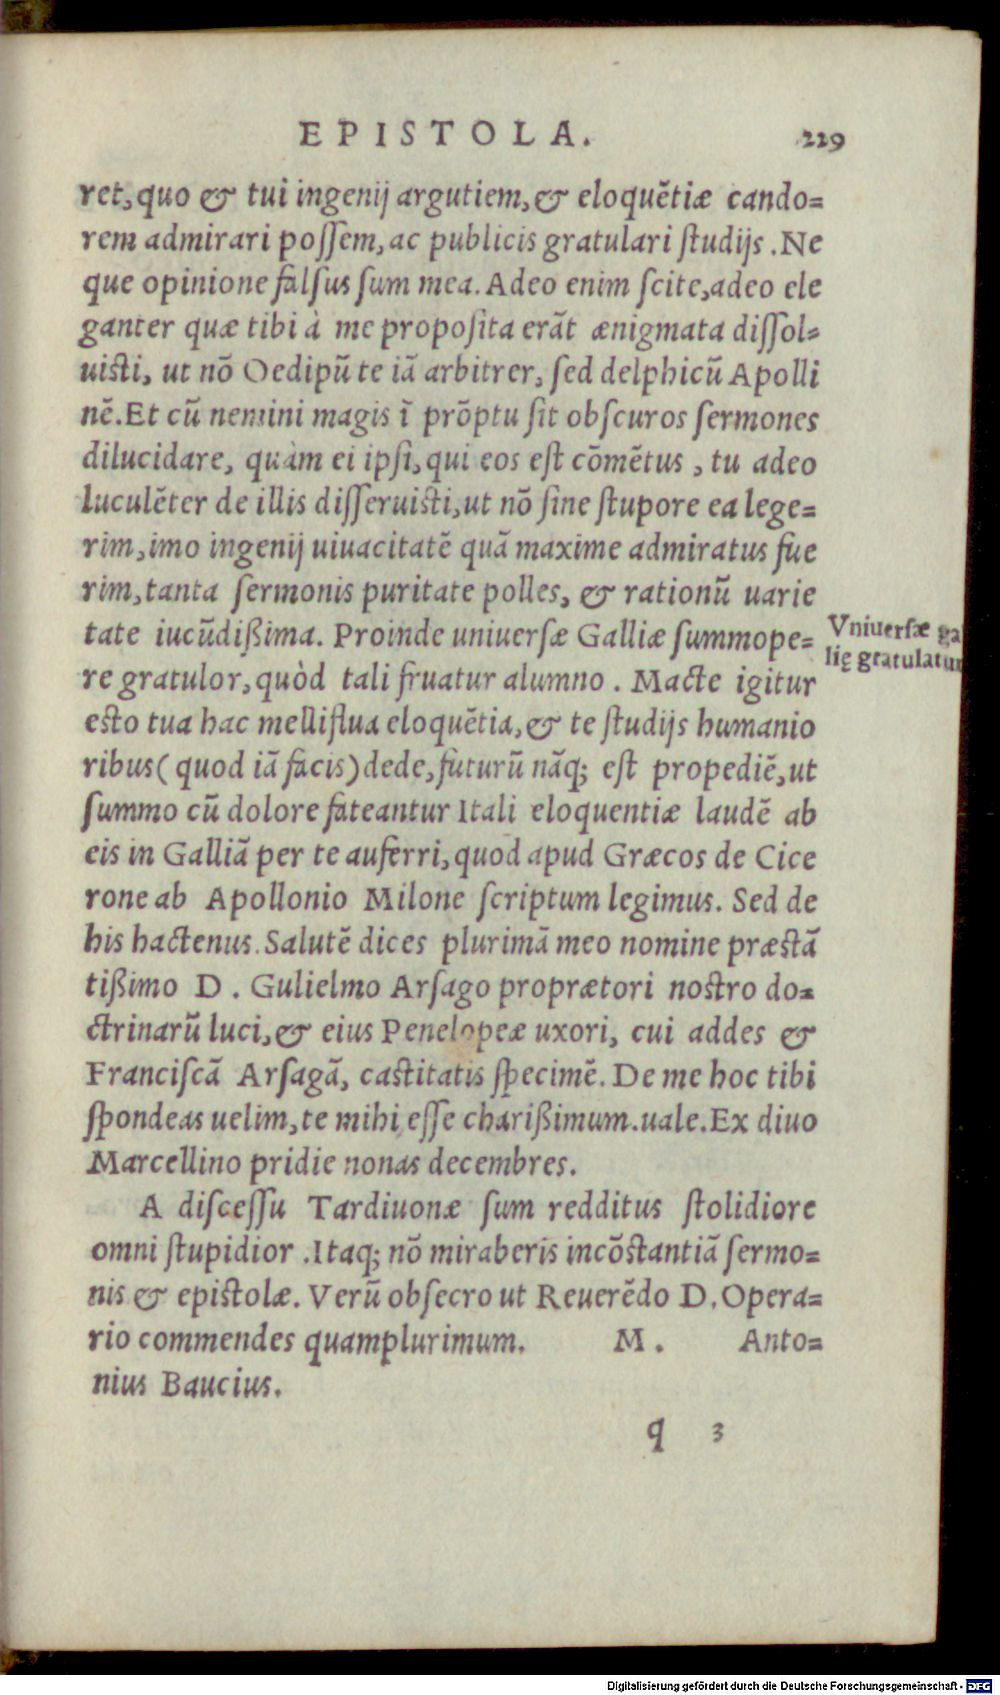 EPISTOLA. 229
ret, quo & tui ingenij argutiem, & eloquẽtiæ cando=
rem admirari possem, ac publicis gratulari studijs. Ne
que opinione falsus sum mea. Adeo enim scite, adeo ele
ganter quæ tibi à me proposita erãt ænigmata dissol=
uisti, ut nõ Oedipũ te iã arbitrer, sed delphicũ Apolli
nẽ. Et cũ nemini magis ĩ prõptu sit obscuros sermones
dilucidare, quàm ei ipsi, qui eos est cõmẽtus, tu adeo
luculẽter de illis disseruisti, ut nõ sine stupore ea lege=
rim, imo ingenij uiuacitatẽ quã maxime admiratus fue
rim, tanta sermonis puritate polles, & rationũ uarie
tate iucũdißima. Proinde uniuersæ Galliæ summope=
re gratulor, quòd tali fruatur alumno. Macte igitur
esto tua hac melliflua eloquẽtia, & te studijs humanio
ribus (quod iã facis) dede, futurũ nãq; est propediẽ, ut
summo cũ dolore fateantur Itali eloquentiæ laudẽ ab
eis in Galliã per te auferri, quod apud Græcos de Cice
rone ab Apollonio Milone scriptum legimus. Sed de
his hactenus. Salutẽ dices plurimã meo nomine præstã
tißimo D. Gulielmo Arsago proprætori nostro do=
ctrinarũ luci, & eius Penelopeæ uxori, cui addes &
Franciscã Arsagã, castitatis specimẽ. De me hoc tibi
spondeas uelim, te mihi esse charißimum. uale. Ex diuo
Marcellino pridie nonas decembres.
A discessu Tardiuonæ sum redditus stolidiore
omni stupidior. Itaq; nõ miraberis incõstantiã sermo=
nis & epistolæ. Verũ obsecro ut Reuerẽdo D. Opera=
rio commendes quamplurimum. M. Anto=
nius Baucius.
q 3
Vniuersæ ga
lię gratulatur
Digitalisierung gefördert durch die Deutsche Forschungsgemeinschaft - DFG